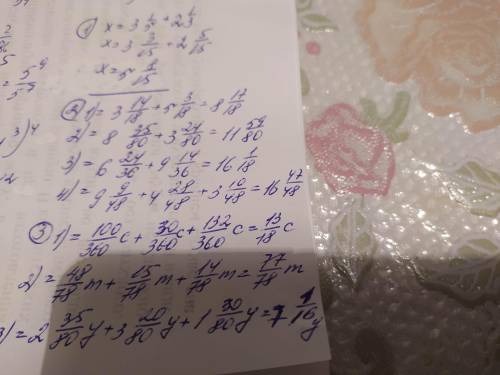 ① x = 3 1/5 + 2 1/3
x = 3 3/15 + 2 5/15
x = 5 8/15
② 1) = 3 14/18 + 5 3/18 = 8 17/18
2) = 8 35/80 + 3 24/80 = 11 59/80
3) = 6 24/36 + 9 14/36 = 16 1/18
4) = 9 9/48 + 4 28/48 + 3 10/48 = 16 47/48
③ 1) = 100/360 c + 30/360 c + 132/360 c = 13/18 c
2) = 48/78 m + 15/78 m + 14/78 m = 77/78 m
3) = 2 35/80 y + 3 20/80 y + 1 30/80 y = 7 1/16 y